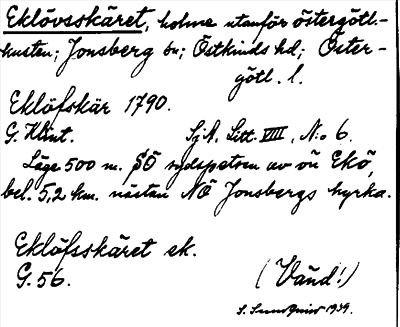 Eklövsskäret, holme utanför östergötl.-
kusten; Jonsberg sn; Östkinds hd; Öster-
götl. l.
Eklöfskär 1790.
G. Klint. Sjk. Litt. VIII, No 6.
Läge 500 m. SÖ sydspetsen av ön Ekö,
bel. 5,2 km. nästan NÖ Jonsbergs kyrka.
Eklöfsskäret ek.
G. 56. (Vänd!)
S. 1939.